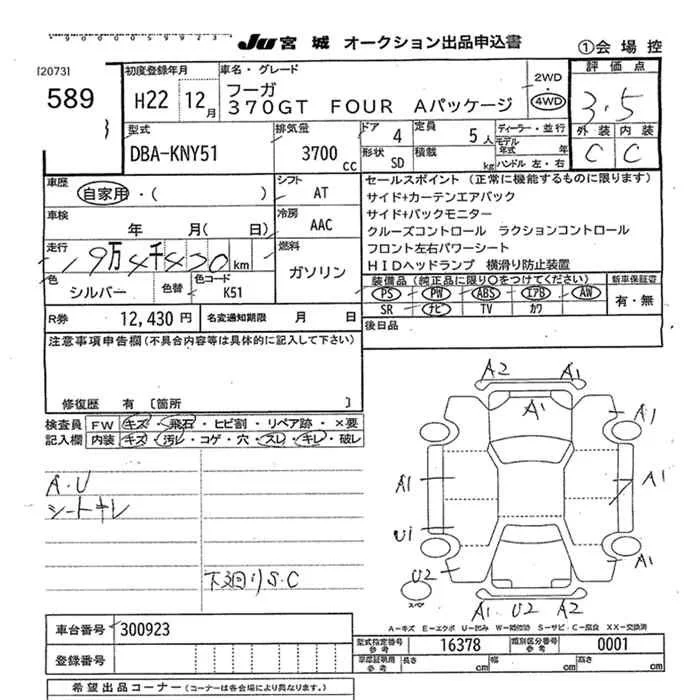 JU 宮城 オークション出品申込書 ①会場控
[2073]
589
初度登録年月 H22 12月
車名・グレード
フーガ
370GT FOUR Aパッケージ
2WD・4WD
評価点 3.5
外装 内装
C C
型式
DBA-KNY51
排気量
3700 cc
ドア 4
定員 5人
形状 SD
積載 kg
ディーラー・並行
モデル年式 年
ハンドル 左・右
車歴 自家用・( )
シフト AT
セールスポイント(正常に機能するものに限ります)
サイド+カーテンエアバック
サイド+バックモニター
クルーズコントロール ラクションコントロール
フロント左右パワーシート
HIDヘッドランプ 横滑り防止装置
車検 年 月( 日)
冷房 AAC
走行 19万4千420km
燃料 ガソリン
色 シルバー 色替 色コード K51
装備品(純正品に限り○をつけてください) 新車保証書
PS PW ABS エアB AW 有・無
SR ナビ TV カワ
R券 12,430円 名変通知期限 月 日
後日品
注意事項申告欄(不具合内容等は具体的に記入して下さい)
修復歴 有 [箇所 ]
検査員 FW キズ・飛石・ヒビ割・リペア跡・×要
記入欄 内装 キズ・汚レ・コゲ・穴・スレ・キレ・破レ
A.U
シートキレ
下回りS.C
A2 A1
A1 A1
A1 A1
U1
U2 A1
スペア
A1 U2 A2
A−キズ E−エクボ U−凹み W−補修跡 S−サビ・C−腐食 XX−交換済
車台番号 300923
登録番号
型式指定番号 参考 16378 類別区分番号 参考 0001
車庫証明用 参考 長さ cm 幅 cm 高さ cm
希望出品コーナー(コーナーは各会場により異なります。)